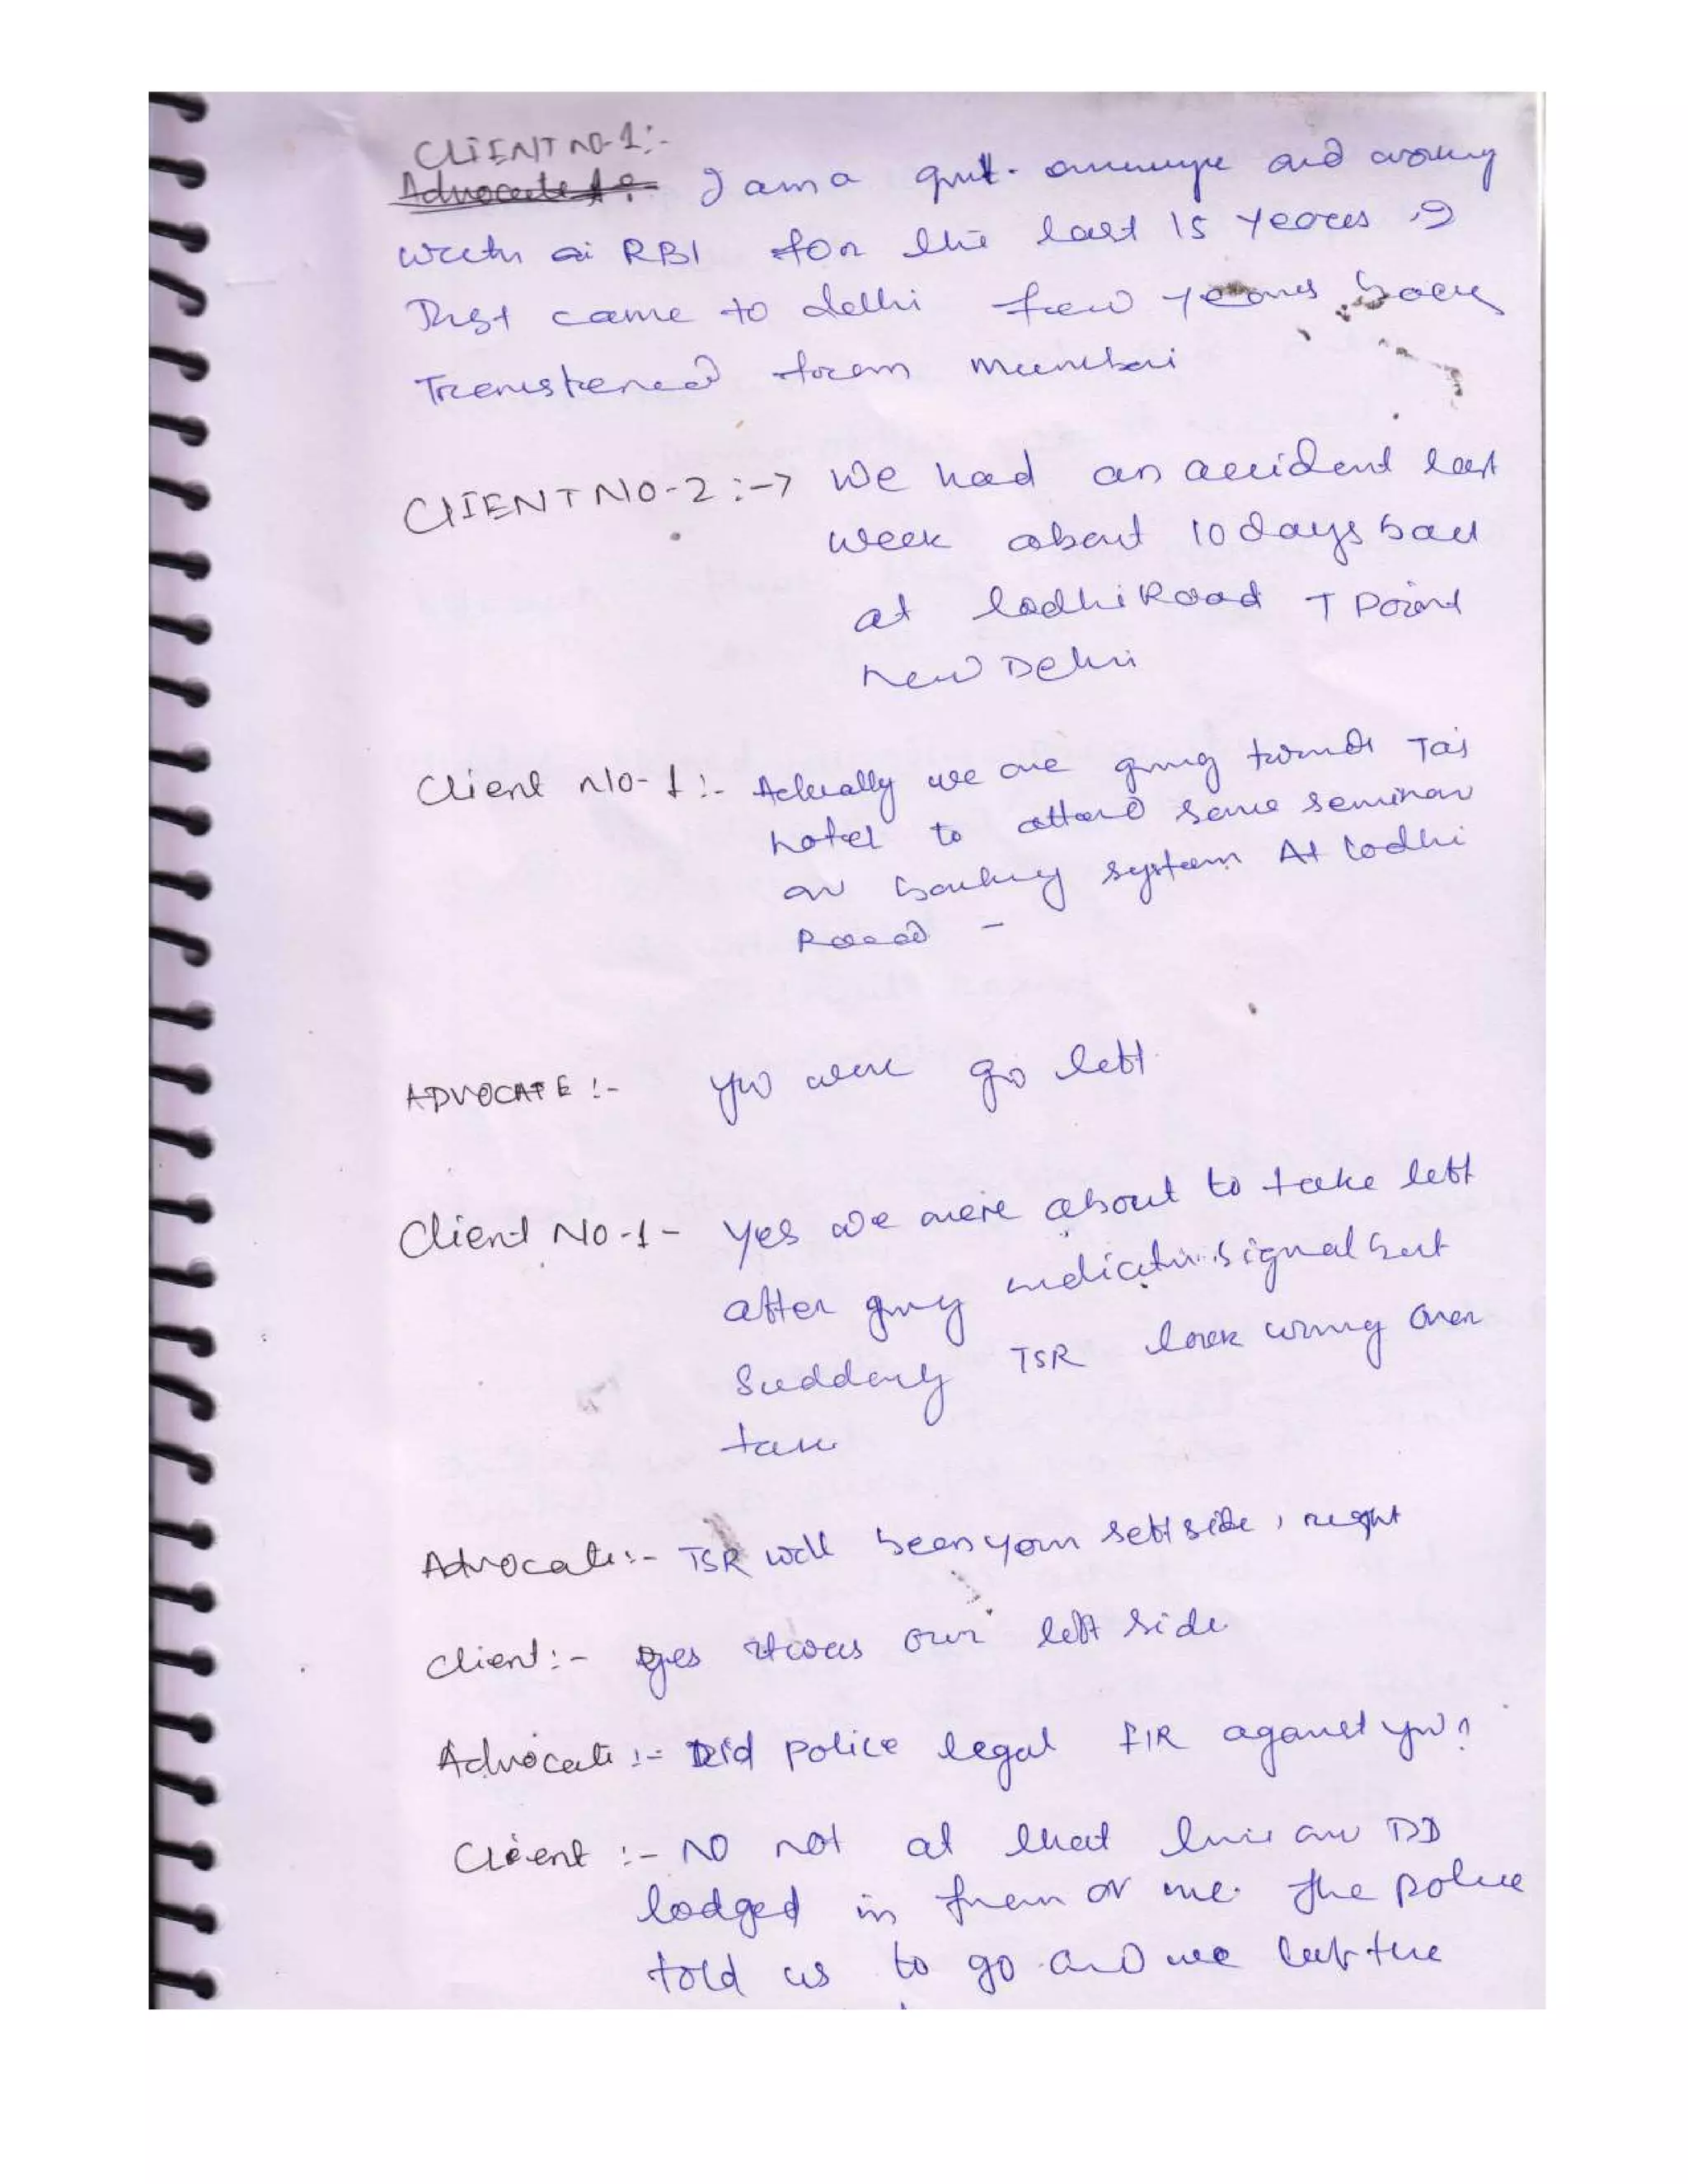 CLIENT NO-1:-
Advocate 1:- I am a govt. and working
with RBI for the last 15 years I
Just came to delhi few years back
from mumbai
CLIENT NO-2 :-> We had an accident last
week about 10 days back
at lodhi Road T Point
New Delhi
Client NO-1 :- Actually we are going towards Taj
hotel to attend some seminar
on banking system At lodhi
Road -
ADVOCATE :- you were go left
Client NO-1 - Yes we were about to take left
after indicator signal but
Suddenly TSR wrong over
take
Advocate :- TSR been your left side, right
client :- yes it was our left side
Advocate :- Did police legal FIR against you?
Client :- NO not at that DD
lodged in or me. The police
told us to go and we left the